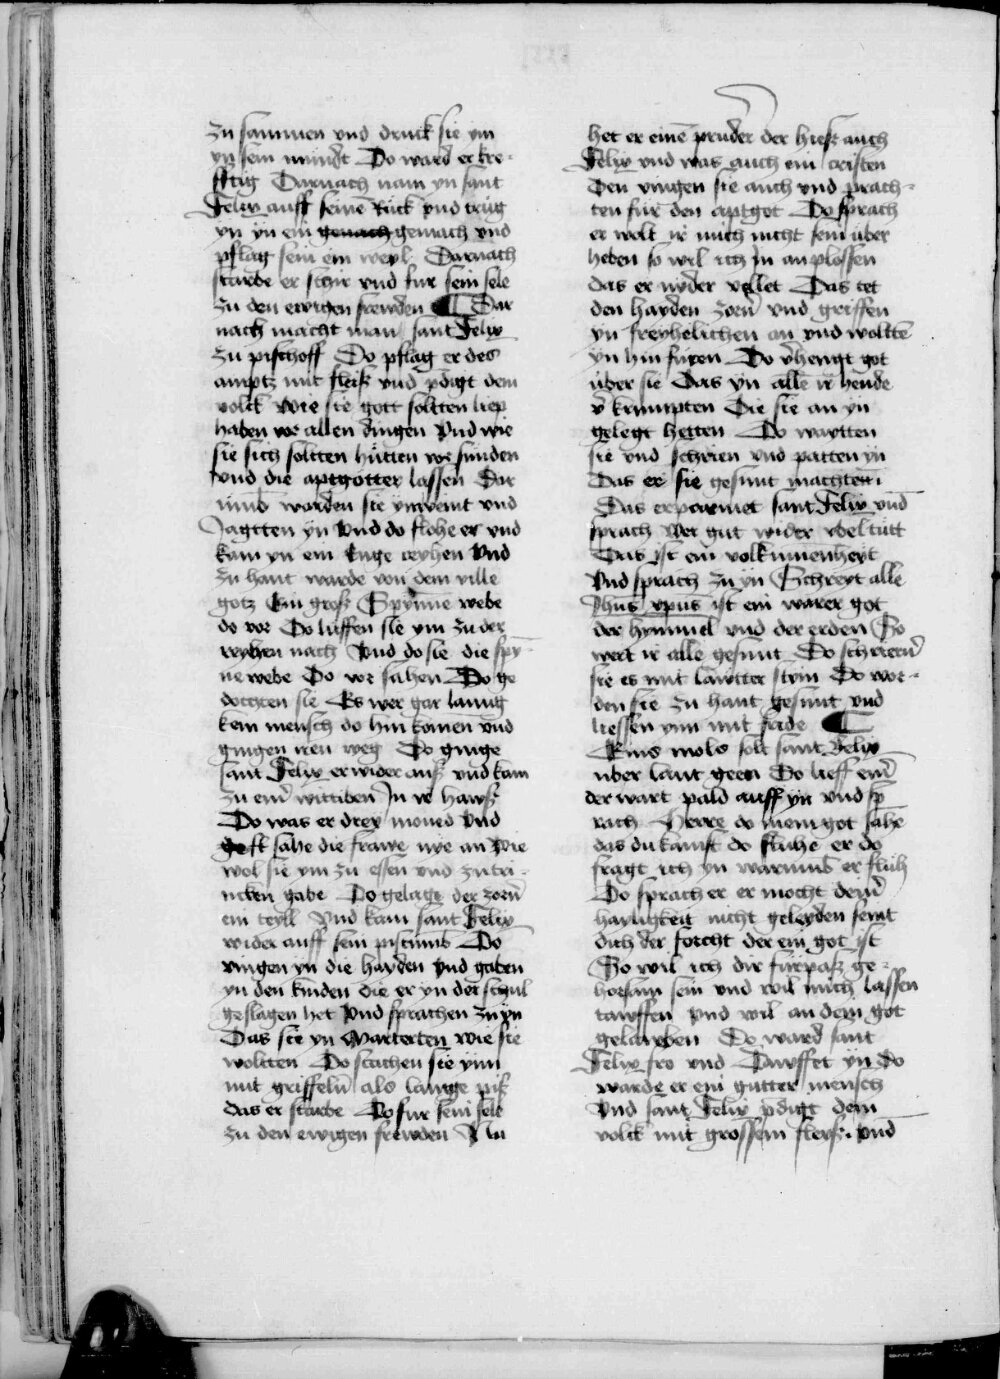 zu sammen vnd druck sie ym
yn sein mundt Do ward er kre-
fftig Darnach nam yn sant
Felix auff seinē Rück vnd trüg
yn yn ein gemach vnd
pflag sein ein weyl Darnach
starbe er schir vnd fur sein sele
zu den ewigen frewden ¶ Dar
nach macht man sant Felix
zu pischoff Do pflag er des
amptz mit fleiß vnd pdigt dem
volck wie sie gott soltten liep
haben vor allen dingen Vnd wie
sie sich soltten hütten vor sünden
vnd die aptgotter lassen Dar
vmb worden sie vnd
Jagtten yn Vnd do flohe er vnd
kam yn ein Enge Vnd
zu hant warde von dem ville
gotz Ein groß Spynne webe
do vor Do lüffen sie ym zu der
nach Vnd do sie die spy-
ne webe Do vor sahen Do ge
dochten sie Es wer gar lanng
kein mensch do hin komen vnd
gingen iren weg Do ginge
sant Felix er wider auß vnd kam
zu einer wittiben In ir hawß
Do was er drey moned Vnd
sahe die frawe nye an Wie
wol sie ym zu essen vnd zu tri-
ncken gabe Do gelage der zorn
ein teyll Vnd kam sant Felix
wider auff sein pistumb Do
vingen yn die hayden Vnd gaben
yn den kinden die er yn der schul
geslagen het Vnd sprachen zu yn
Das sie yn Marterten wie sie
woltten Do stachen sie ynn
mit griffeln als lannge piß
das er starbe Do fur sein sele
zu den ewigen frewden Nu
het er einē pruder der hieß auch
Felix vnd was auch ein cristen
Den vingen sie auch vnd prach-
ten für den aptgot Do sprach
er wolt ir mich nicht sein über
heben so wil ich In an plossen
das er nyder vellet Das tet
den hayden zorn vnd griffen
yn freyhelichen an vnd woltte
yn hin füren Do v̄hengt got
über sie Das yn alle ir hende
v̄ krumpten Die sie an yn
gelegt hetten Do waytten
sie vnd schrien vnd patten yn
Das er sie gesunt machten
Das erparmet sant Felix vnd
sprach Wer gut wider übel tutt
Das ist ein volkumenheyt
Vnd sprach zu yn Schreyt alle
Jhūs xp̄us ist ein warer got
der hymmel vnd der erden So
wert ir alle gesunt Do schrieren
sie es mit lawtter stym Do wor-
den sie zu hant gesunt vnd
liessen ynn mit fride ¶
Eins mols solt sant Felix
über lant geen Do lieff einer
der wart pald auff yn vnd sp
rach Herre do mein got sahe
das du kamst do fluhe er do
fragt ich yn warumb er fluh
Do sprach er er mocht deiner
hayligkeit nicht geleyden seint
dich der forcht der ein got ist
So wil ich dir fürpaß ge-
horsam sein vnd wil mich lassen
tawffen Vnd wil an dem got
gelawben Do ward sant
Felix fro vnd Tawffet yn Do
warde er ein gutter mensch
Vnd sant Felix pdigt dem
volck mit grossem fleyß vnd